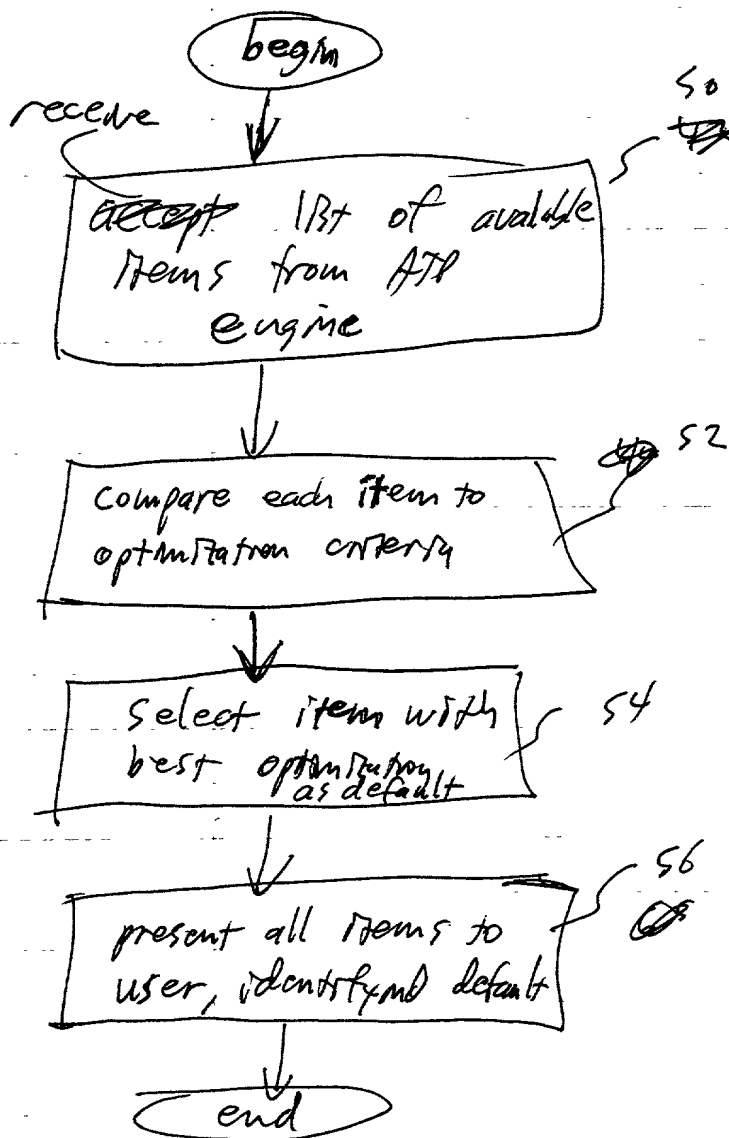 begin
receive
50
accept list of available
items from ATP
engine
52
compare each item to
optimization criteria
select item with
best optimization
as default
54
present all items to
user, identifying default
56
end